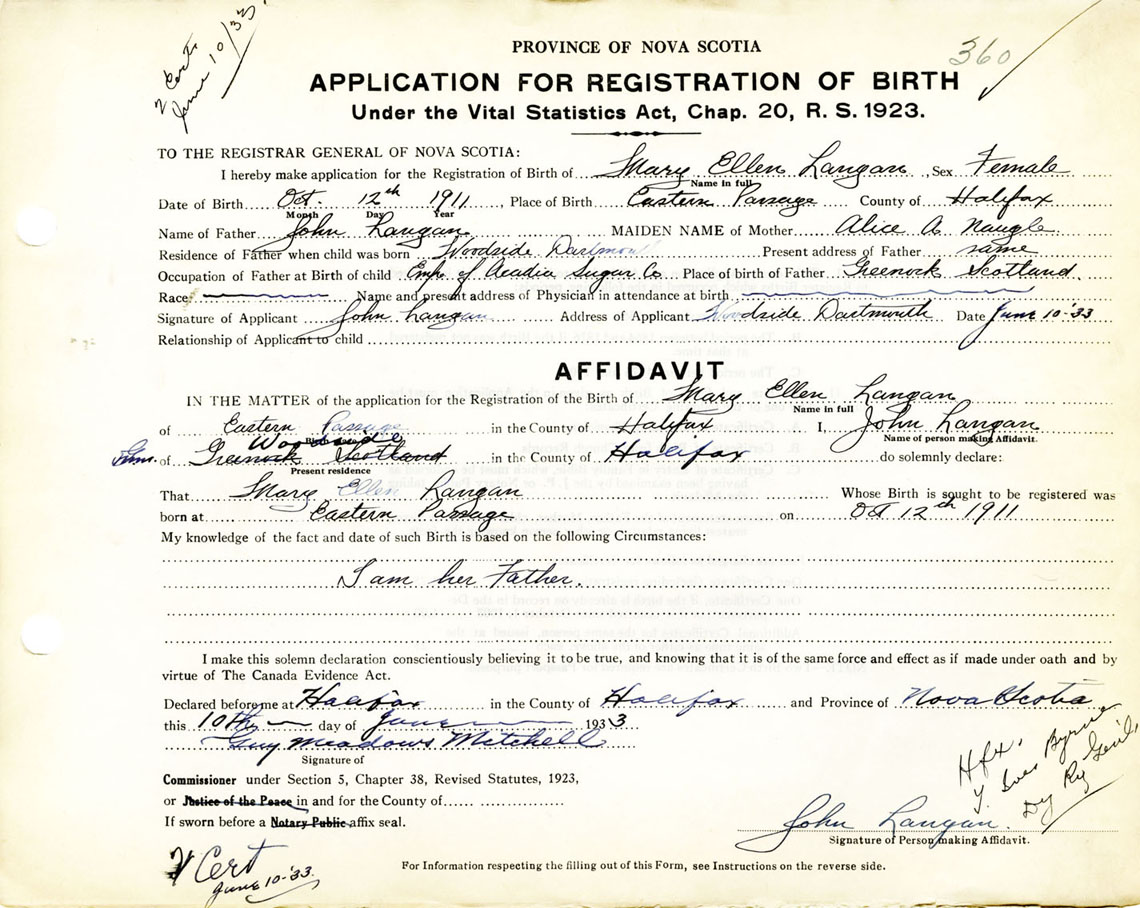 2 Cert.
June 10/33.
360
PROVINCE OF NOVA SCOTIA
APPLICATION FOR REGISTRATION OF BIRTH
Under the Vital Statistics Act, Chap. 20, R. S. 1923.
TO THE REGISTRAR GENERAL OF NOVA SCOTIA:
I hereby make application for the Registration of Birth of Mary Ellen Langan, Sex Female
Name in full
Date of Birth Oct. 12th 1911, Place of Birth Eastern Passage County of Halifax
Month Day Year
Name of Father John Langan MAIDEN NAME of Mother Alice A Naugle
Residence of Father when child was born Woodside Dartmouth Present address of Father same
Occupation of Father at Birth of child Emp. of Acadia Sugar Co Place of birth of Father Greenock Scotland.
Race: Name and present address of Physician in attendance at birth
Signature of Applicant John Langan Address of Applicant Woodside Dartmouth Date June 10-33
Relationship of Applicant to child
AFFIDAVIT
IN THE MATTER of the application for the Registration of the Birth of Mary Ellen Langan
Name in full
of Eastern Passage in the County of Halifax I, John Langan
Name of person making Affidavit.
Woodside
of Greenock Scotland in the County of Halifax do solemnly declare:
Present residence
That Mary Ellen Langan Whose Birth is sought to be registered was
born at Eastern Passage on Oct 12th 1911
My knowledge of the fact and date of such Birth is based on the following Circumstances:
I am her Father.
I make this solemn declaration conscientiously believing it to be true, and knowing that it is of the same force and effect as if made under oath and by
virtue of The Canada Evidence Act.
Declared before me at Halifax in the County of Halifax and Province of Nova Scotia
this 10th day of June 1933
Guy Meadows Mitchell
Signature of
Commissioner under Section 5, Chapter 38, Revised Statutes, 1923,
or Justice of the Peace in and for the County of
If sworn before a Notary Public affix seal.
Hfx.
Byrne
Dy Reg Gen'l
John Langan.
Signature of Person making Affidavit.
2 Cert
June 10-'33.
For Information respecting the filling out of this Form, see Instructions on the reverse side.